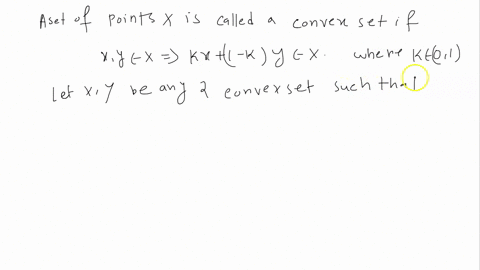 Aset of points X is called a convex set if
x,y ∈ X => Kx+(1-K) y ∈ X. where K∈(0,1)
Let X, Y be any 2 convex set such that